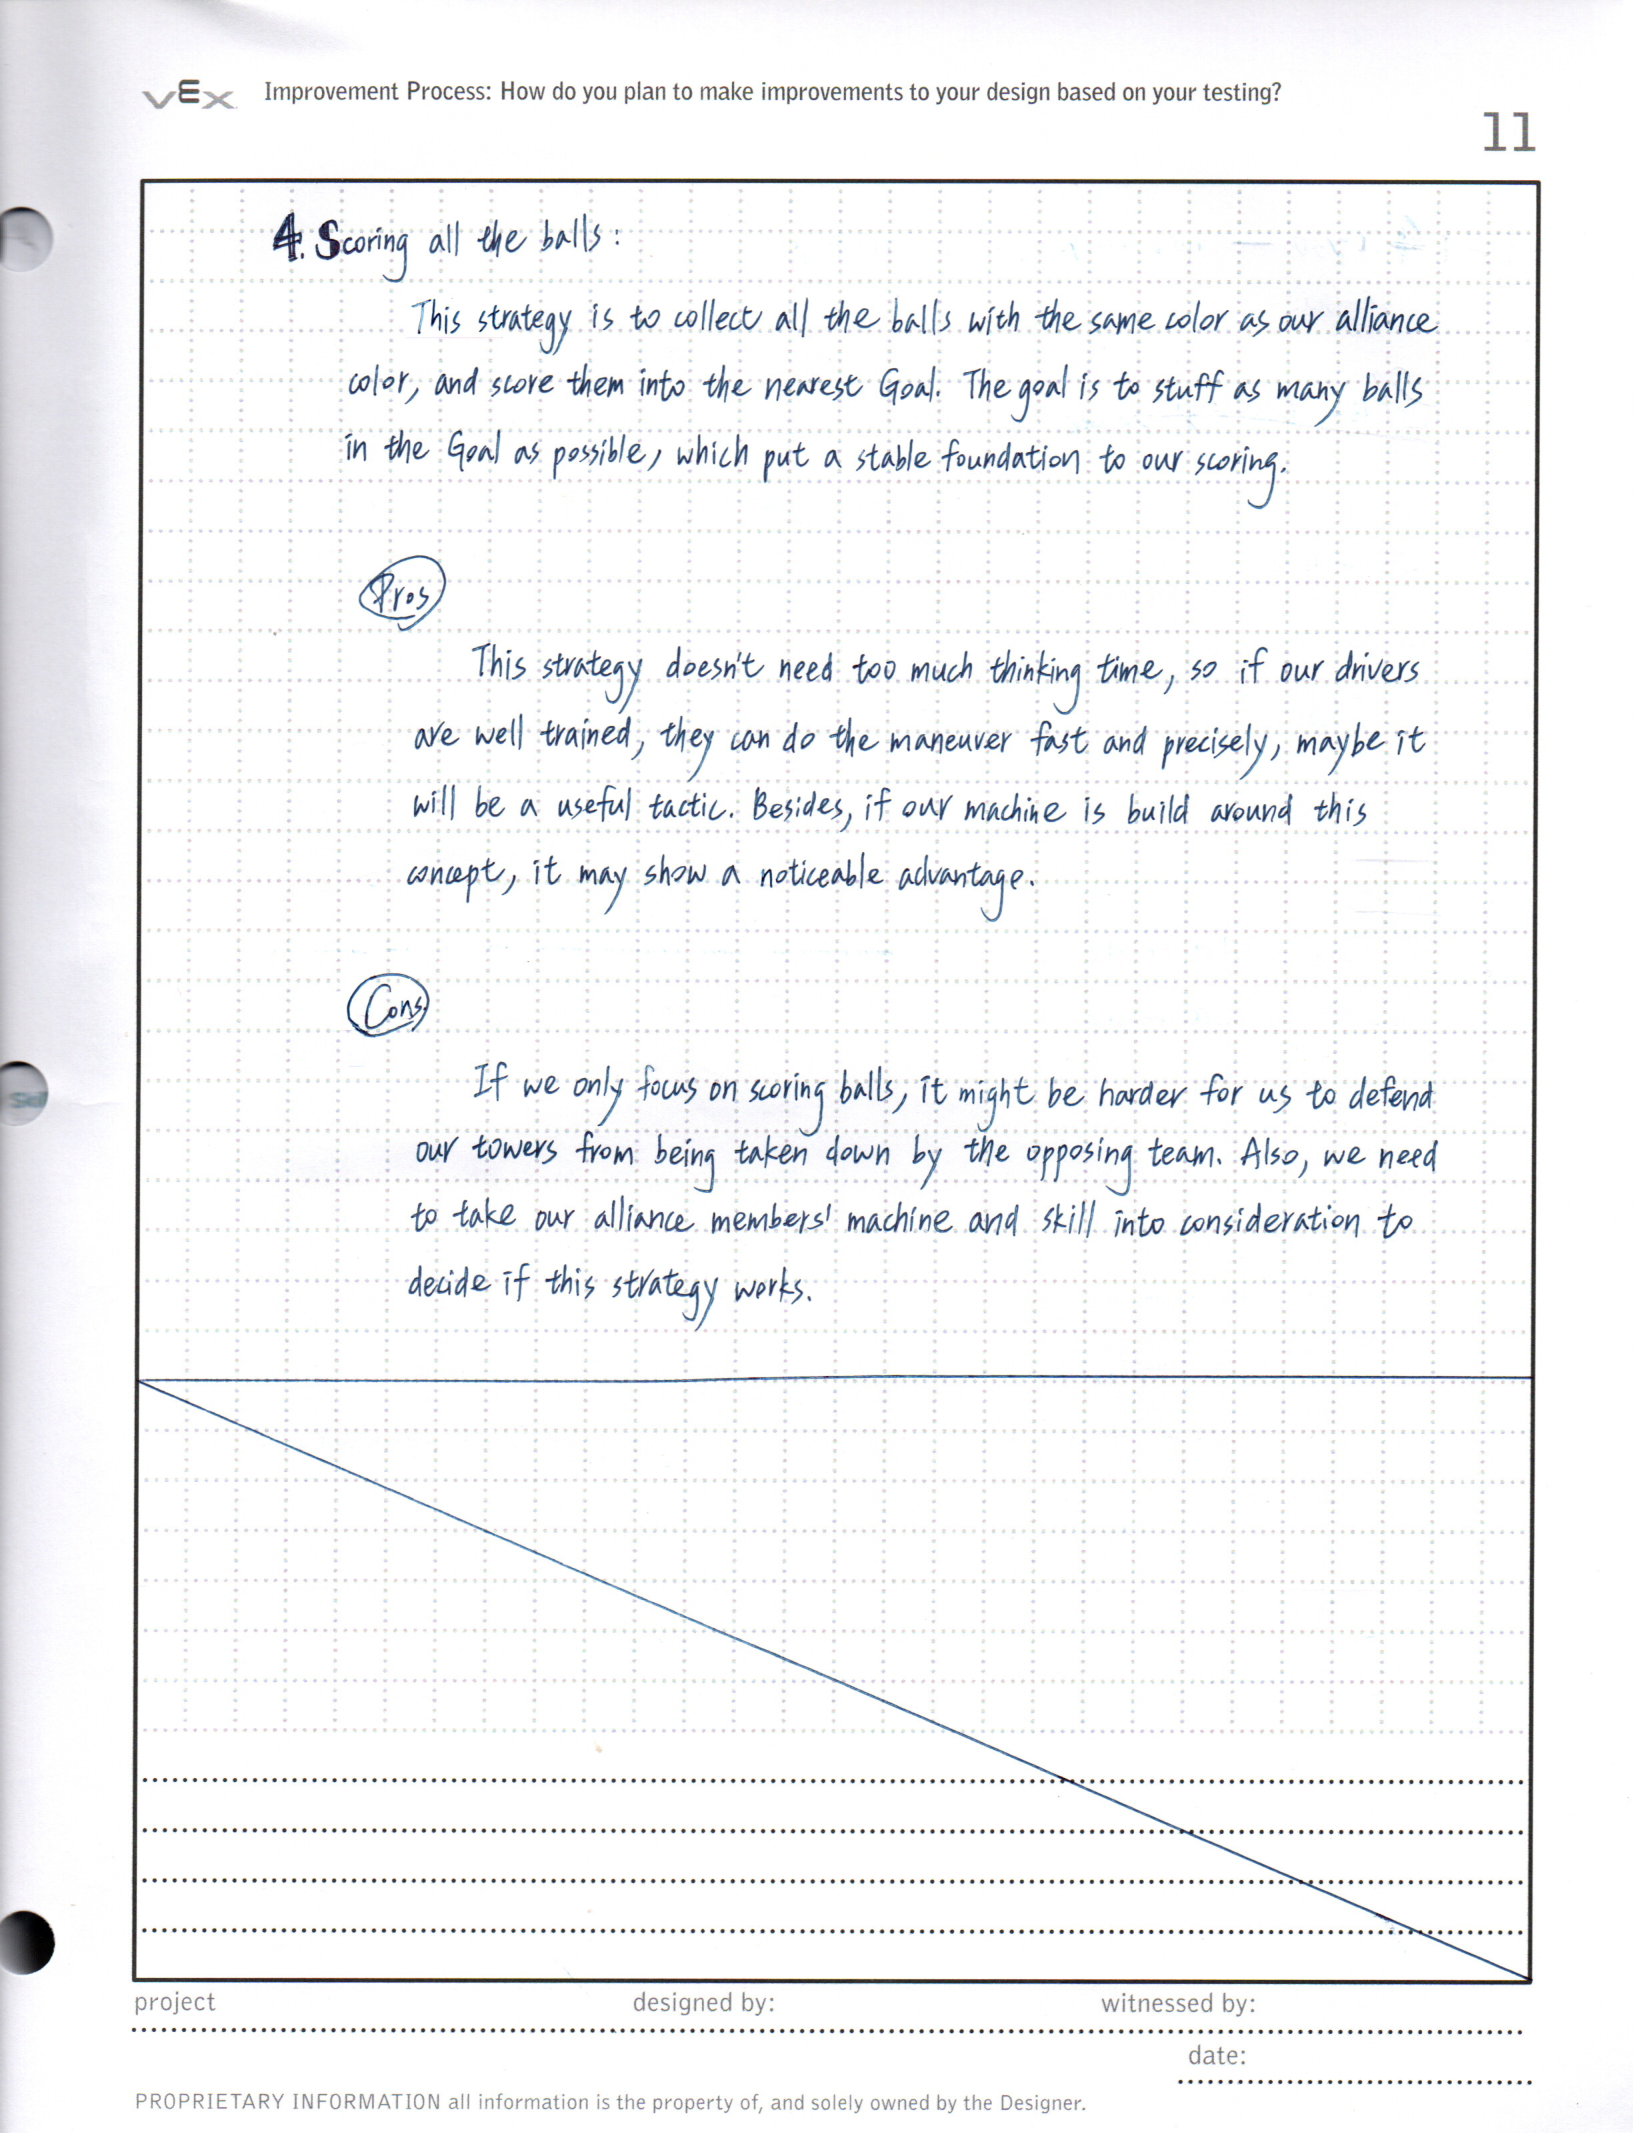 vEx Improvement Process: How do you plan to make improvements to your design based on your testing?
11
4. Scoring all the balls:
This strategy is to collect all the balls with the same color as our alliance
color, and score them into the nearest Goal. The goal is to stuff as many balls
in the Goal as possible, which put a stable foundation to our scoring.
Pros
This strategy doesn't need too much thinking time, so if our drivers
are well trained, they can do the maneuver fast and precisely, maybe it
will be a useful tactic. Besides, if our machine is build around this
concept, it may show a noticeable advantage.
Cons
If we only focus on scoring balls, it might be harder for us to defend
our towers from being taken down by the opposing team. Also, we need
to take our alliance members' machine and skill into consideration to
decide if this strategy works.
project designed by: witnessed by:
date:
PROPRIETARY INFORMATION all information is the property of, and solely owned by the Designer.